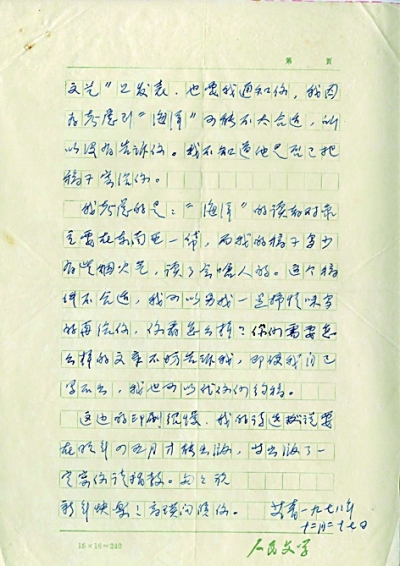 第 頁
文艺”上发表。也要我通知你，我因
为考虑到“海洋”可能不大合适，所
以没有告诉你。我不知道他是否已把
稿子寄给你。
我考虑的是：“海洋”的读者对象
主要在东南亚一带，而我的稿子多少
有些烟火气，读了会呛人的。这个稿
件不合适，我可以另找一些抒情味多
的再给你，你看怎么样？你们需要怎
么样的文章不妨告诉我，即便我自己
写不出，我也可以代你们约稿。
这边的印刷很慢，我的诗选据说要
在明年四五月才能出版，出版了一
定寄你请指教。匆匆祝
新年快乐！高瑛问候你。 艾青一九七八年
十二月二十七日
15×16=240
人民文学